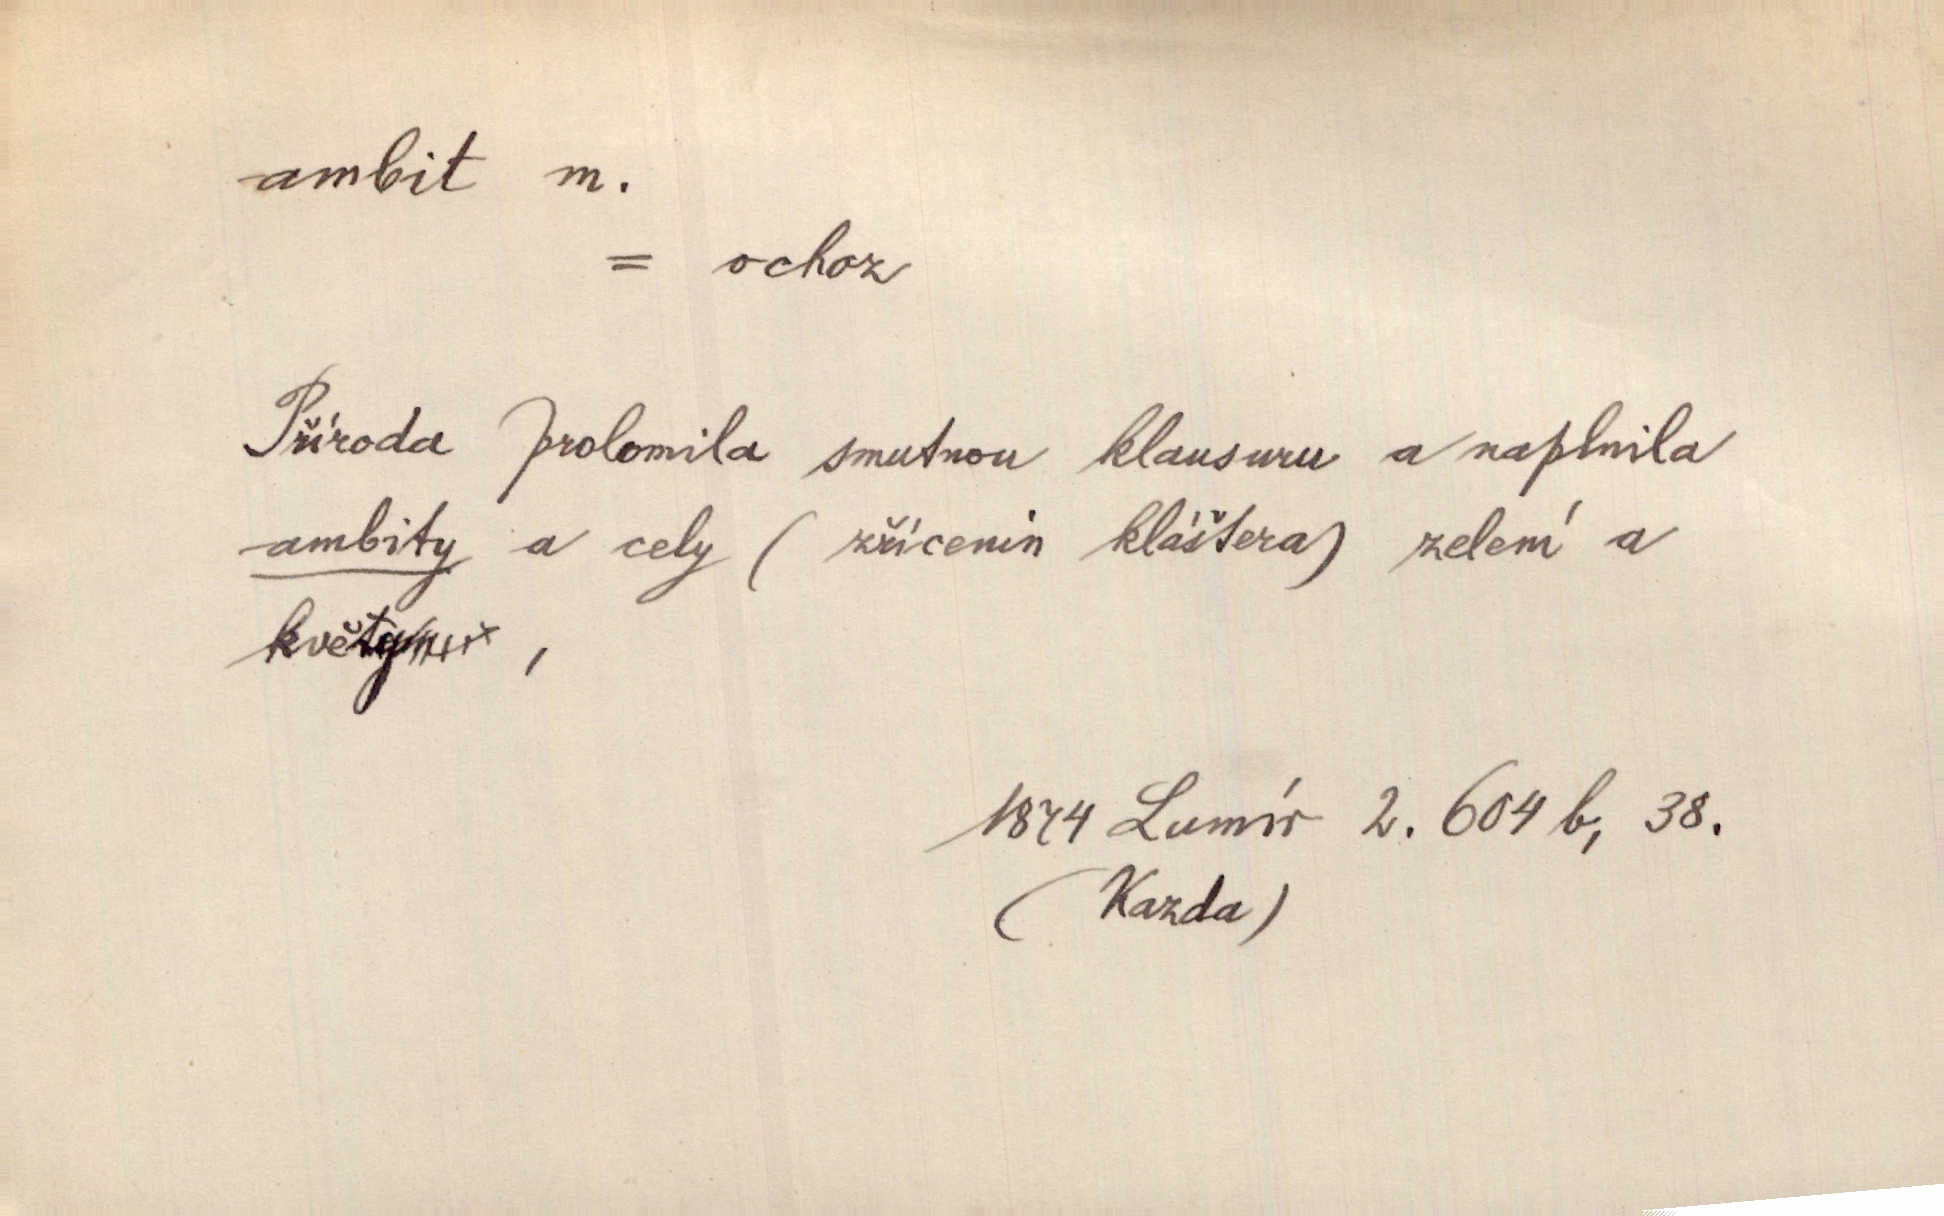 ambit m.
= ochoz
Příroda prolomila smutnou klausuru a naplnila
ambity a cely ( zřícenin kláštera) zelení a
květy,
1874 Lumír 2. 604 b, 38.
( Kazda)